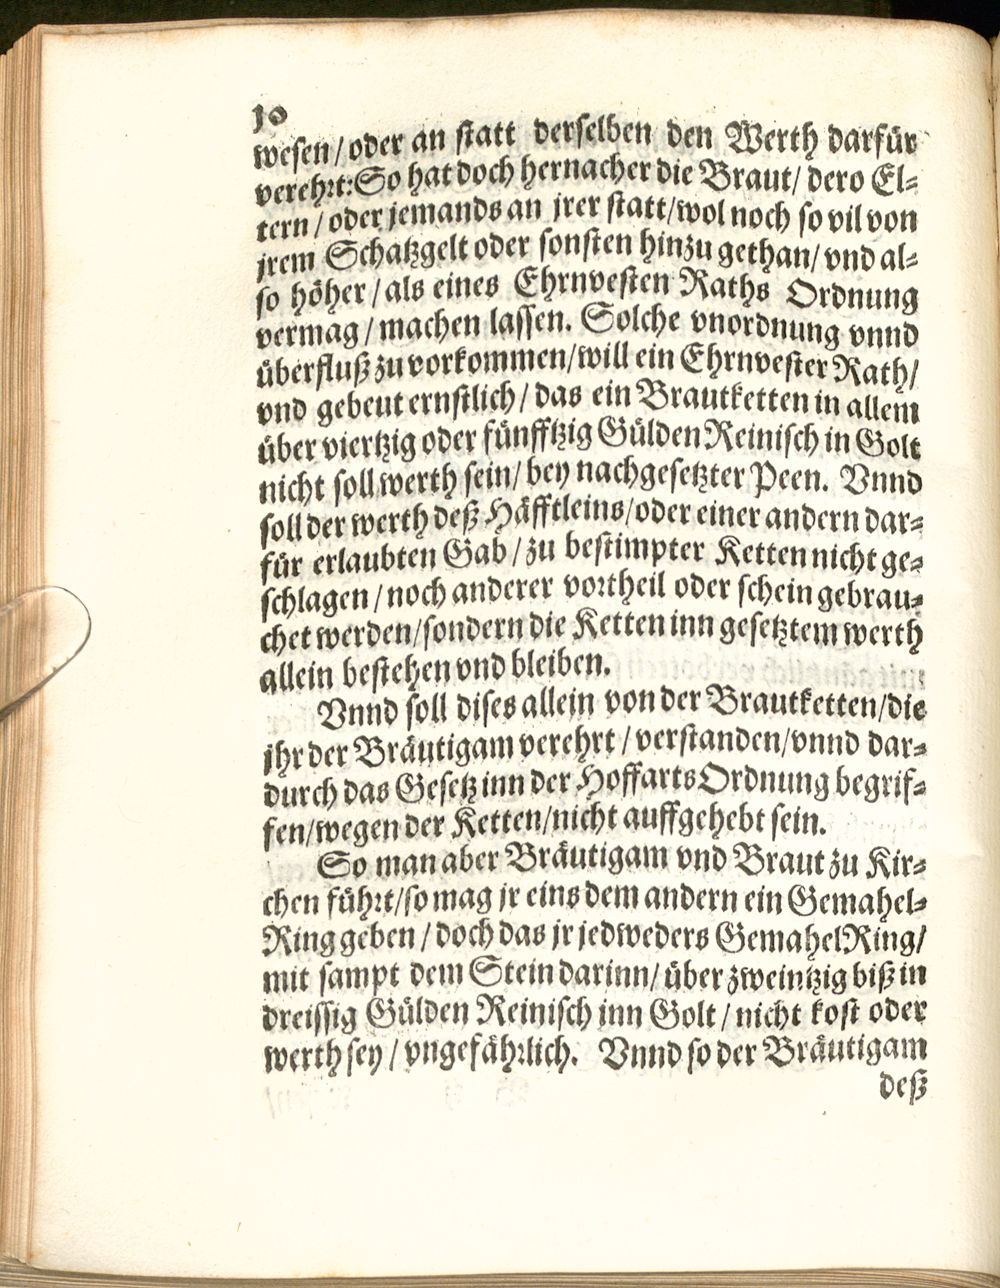 10
wesen/oder an statt derselben den Werth darfür
verehrt: So hat doch hernacher die Braut/ dero El⸗
tern/oder jemands an jrer statt/wol noch so vil von
jrem Schatzgelt oder sonsten hinzu gethan/ vnd al⸗
so höher/als eines Ehrnvesten Raths Ordnung
vermag/machen lassen. Solche vnordnung vnnd
überfluß zu vorkommen/will ein Ehrnvester Rath/
vnd gebeut ernstlich/ das ein Brautketten in allem
über viertzig oder fünfftzig Gülden Reinisch in Golt
nicht soll werth sein/ bey nachgesetzter Peen. Vnnd
soll der werth deß Häfftleins/oder einer andern dar⸗
für erlaubten Gab/zu bestimpter Ketten nicht ge⸗
schlagen/noch anderer vortheil oder schein gebrau⸗
chet werden/sondern die Ketten inn gesetztem werth
allein bestehen vnd bleiben.
Vnnd soll dises allein von der Brautketten/die
jhr der Bräutigam verehrt/verstanden/vnnd dar⸗
durch das Gesetz inn der Hoffarts Ordnung begrif⸗
fen/wegen der Ketten/nicht auffgehebt sein.
So man aber Bräutigam vnd Braut zu Kir⸗
chen führt/so mag jr eins dem andern ein Gemahel⸗
Ring geben/doch das jr jedweders GemahelRing/
mit sampt dem Stein darinn/über zweintzig biß in
dreissig Gülden Reinisch inn Golt/nicht kost oder
werth sey/vngefährlich. Vnnd so der Bräutigam
deß